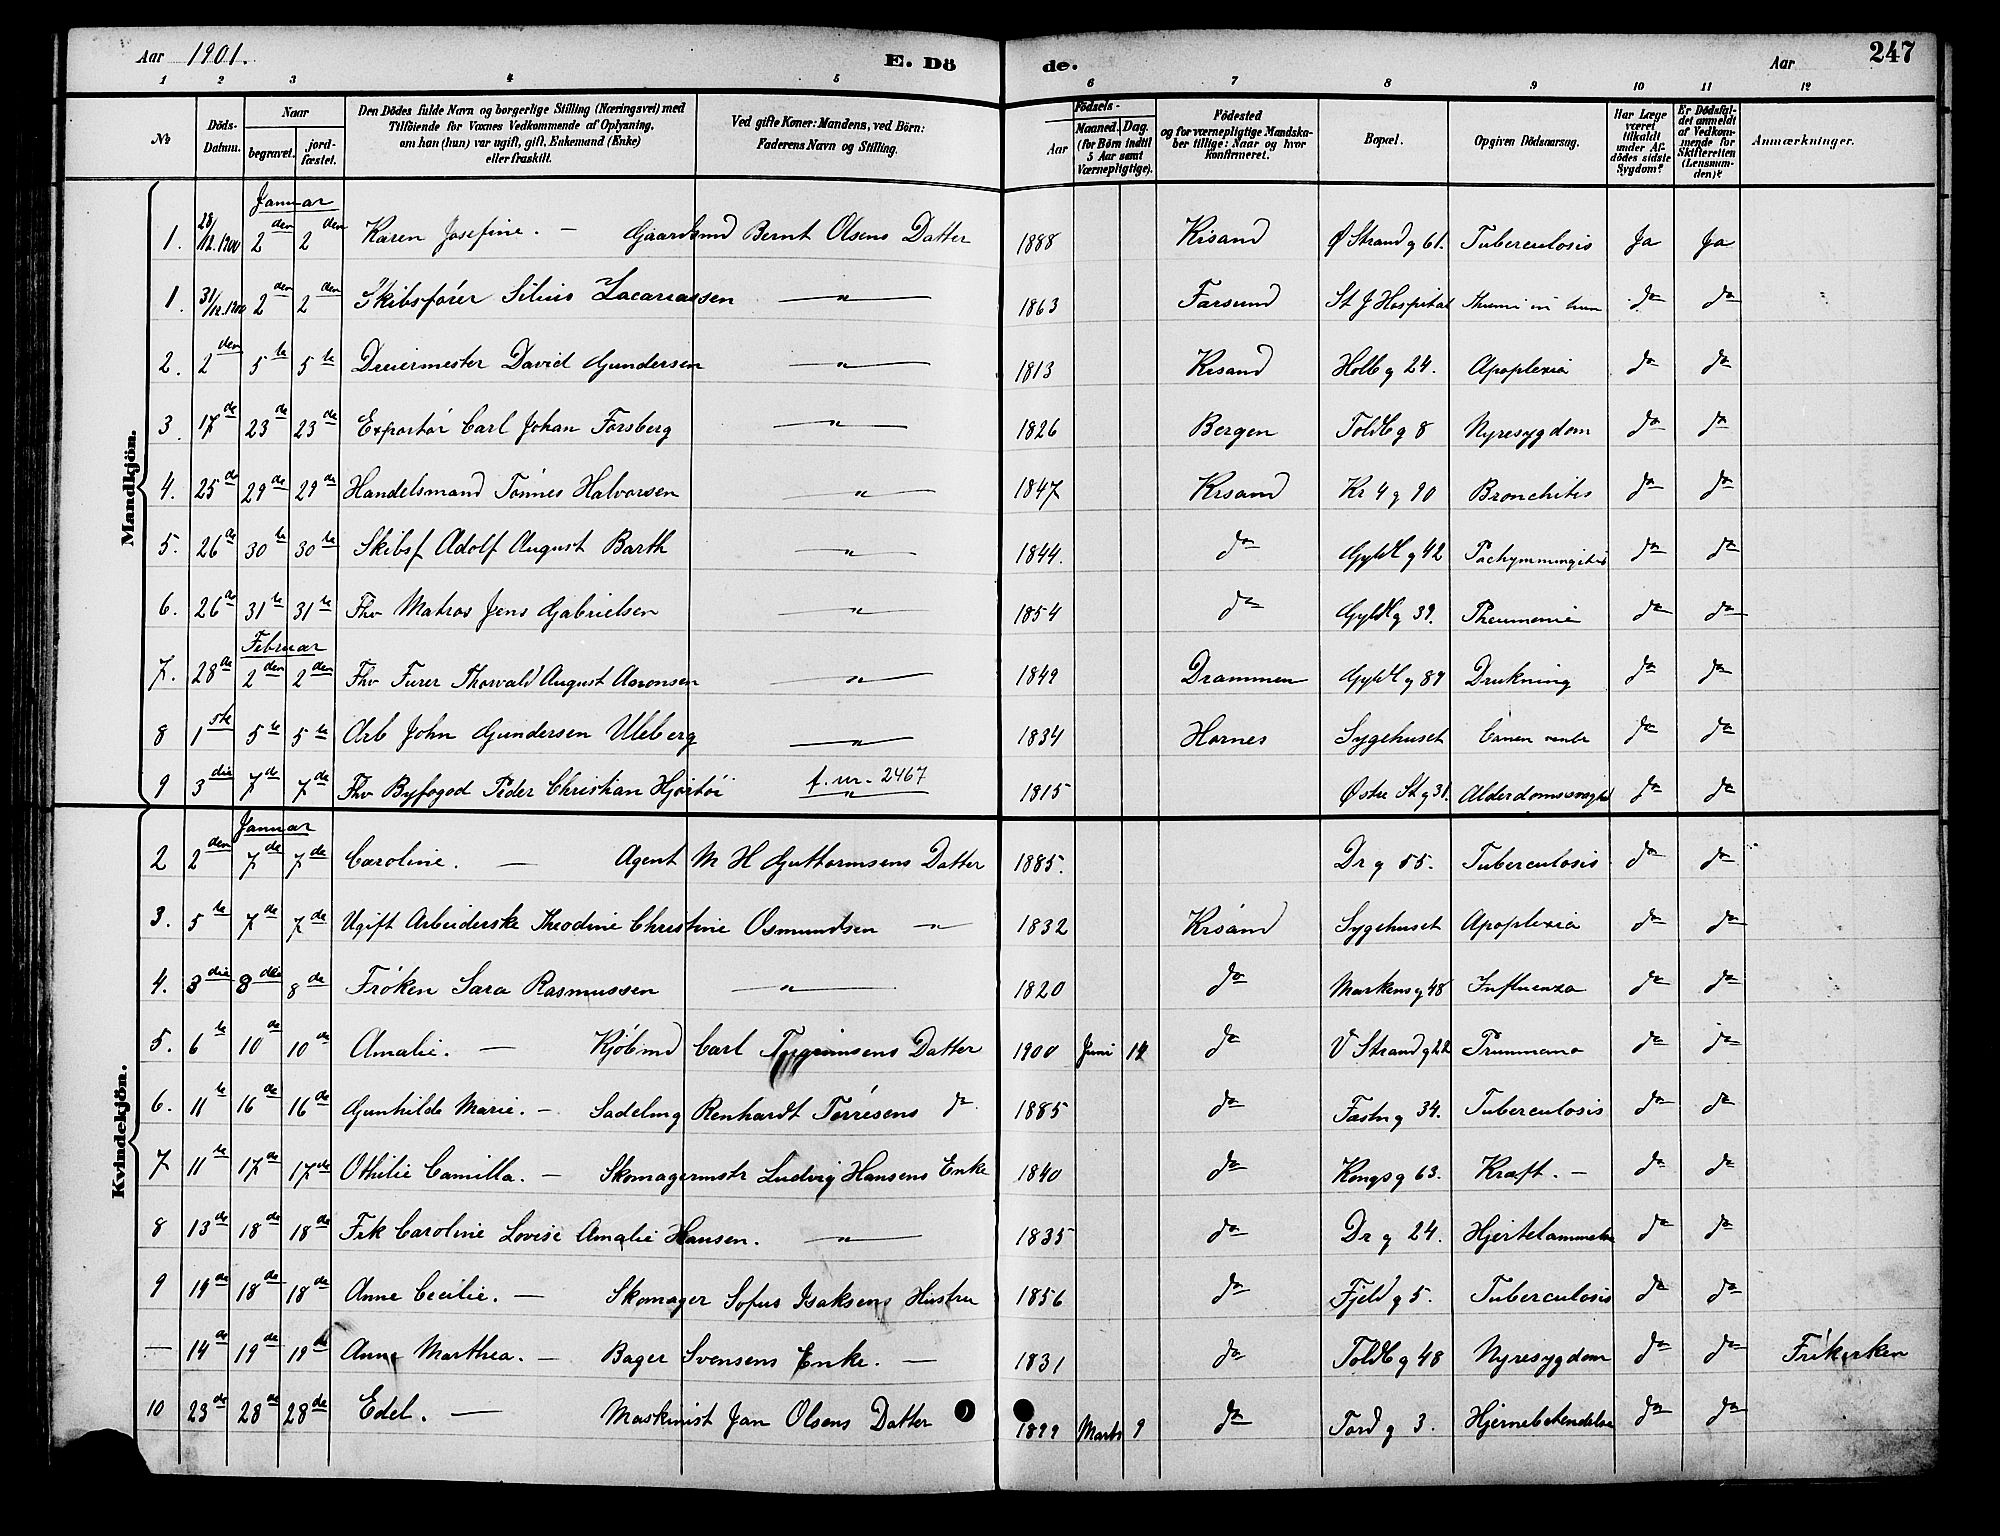 Aar 1901. E. Dö de. Aar 247
1 2 3 4 5 6 7 8 9 10 11 12
No Döds-Datum. Naar begravet. jord-fæstet. Den Dödes fulde Navn og borgerlige Stilling (Næringsvei) med Tilföiende for Voxnes Vedkommende af Oplysning, om han (hun) var ugift, gift, Enkemand (Enke) eller fraskilt. Ved gifte Koner: Mandens, ved Börn: Faderens Navn og Stilling. Födsels- Aar Maaned. Dag. (for Börn indtil 5 Aar samt Værnepligtige). Födested og for værnepligtige Mandskaber tillige: Naar og hvor konfirmeret. Bopæl. Opgiven Dödsaarsag. Har Læge været tilkaldt under Afdödes sidste Sygdom? Er Dödsfaldet anmeldt af Vedkommende for Skifteretten (Lensmanden)? Anmærkninger.
Mandkjön.
Januar
1. 28/12.1900 2den 2den Karen Josefine. — Gaardsmd Bernt Olsens Datter 1888 Krsand Ø Strand g 61. Tuberculosis Ja Ja
1. 31/12.1900 2den 2den Skibsfører Silius Zacariassen — " — 1863 Farsund St J Hospital do do
2. 2den 5te 5te Dreiermester David Gundersen — " — 1813 Krsand Holb g 24. Apoplexia do do
3. 17de 23de 23de Exportør Carl Johan Forsberg — " — 1826 Bergen Toldb g 8 Nyresygdom do do
4. 25de 29de 29de Handelsmand Tønnes Halvorsen — " — 1847 Krsand Kr 4 g 90 Bronchitis do do
5. 26de 30te 30te Skibsf Adolf August Barth — " — 1844. do Gyldl g 42 do do
6. 26de 31te 31te Fhv Matros Jens Gabrielsen — " — 1854 do Gyldl g 39. Pneumonie do do
Februar
7. 28de 2den 2den Fhv Furer Thorvald August Aaronsen — " — 1849 Drammen Gyldl g 89 Drukning do do
8 1ste 5te 5te Arb John Gundersen Uleberg — " — 1834 Hornes Sygehuset do do
9 3die 7de 7de Fhv Byfogod Peder Christian Hjortøi f. nr. 2467 " 1815 Østre St g 31. Alderdomssvaghed do do
Kvindekjön.
Januar
2 2den 7de 7de Caroline. — Agent M H Guttormsens Datter 1885. Dr g 55. Tuberculosis do do
3. 5te 7de 7de Ugift Arbeiderske Theodine Christine Osmundsen — " — 1832 Krsand Sygehuset Apoplexia do do
4. 3die 8de 8de Frøken Sara Rasmussen — " — 1820 do Markens g 48 Influenza do do
5. 6te 10de 10de Amalie. — Kjøbmd Carl Datter 1900 Juni 14 do V Strand g 22 do do
6. 11te 16de 16de Gunhilde Marie. — Sadelmg Renhardt Tørresens do 1885 do Festn g 34. Tuberculosis do do
7 11te 17de 17de Othilie Camilla. — Skomagermstr Ludvig Hansens Enke 1840 do Kongs g 63. Kræft. — do do
8 13de 18de 18de Frk Caroline Lovise Amalie Hansen. — " — 1835 do Dr g 24. Hjertelammelse do do
9 14de 18de 18de Anne Cecilie. — Skomager Sofus Isaksens Hustru 1856 do Fjeld g 5. Tuberculosis do do
— 14de 19de 19de Anne Marthea. — Bager Svensens Enke. — 1831 do Toldb g 48 Nyresygdom do do Frikirken
10 23de 28de 28de Edel. — Maskinist Jan Olsens Datter 1899 Marts 9 do Tord g 3. Hjernebetendelse do do